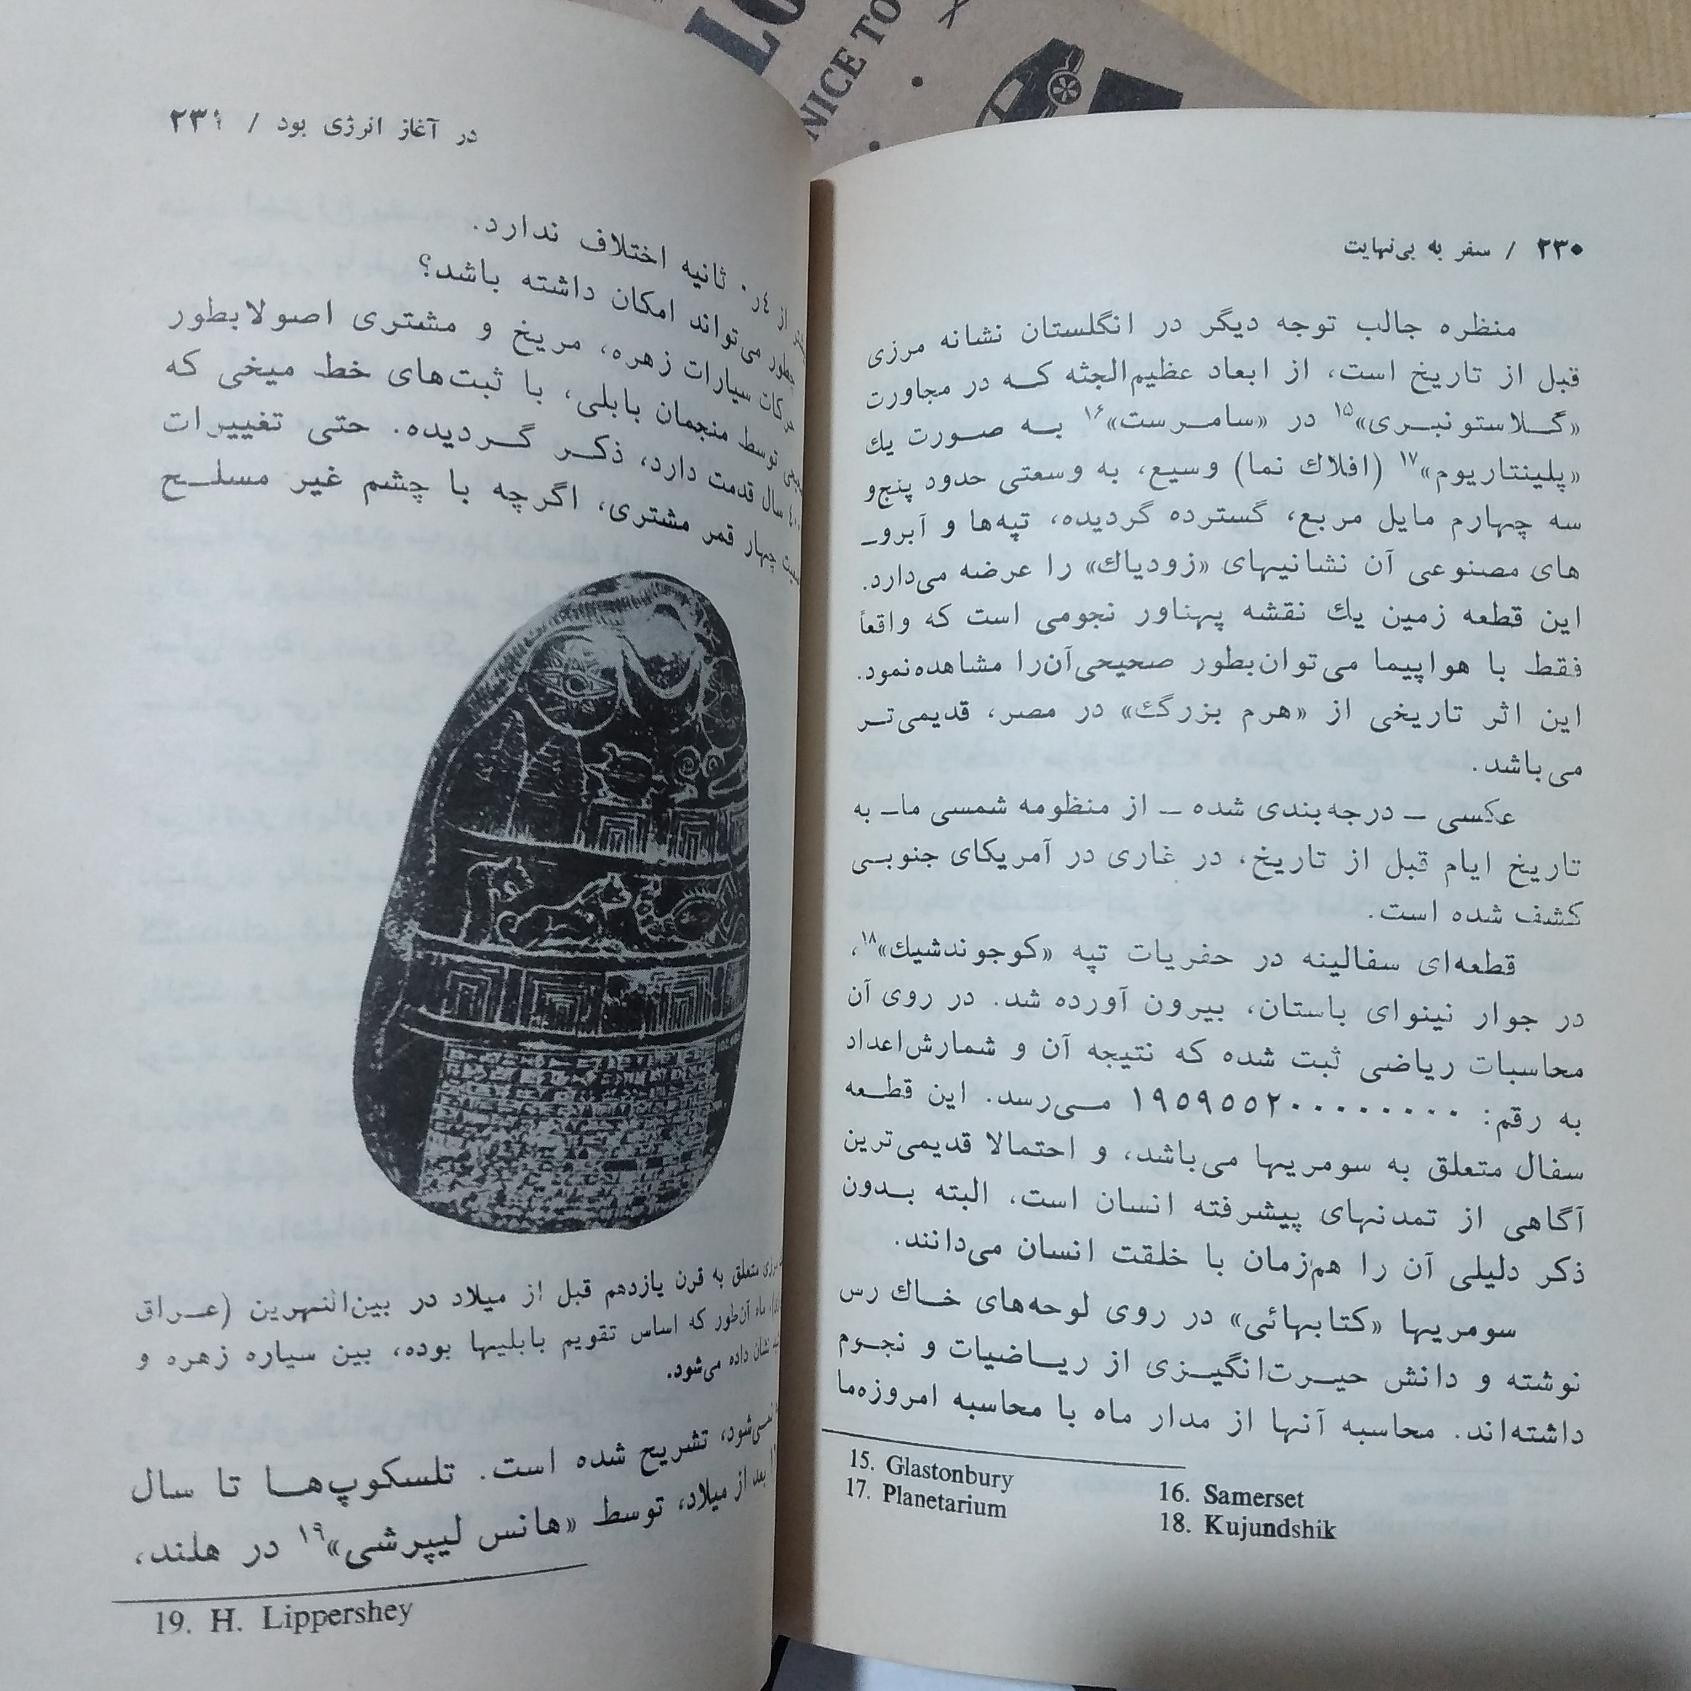 ۲۳۰ / سفر به بی‌نهایت
منظره جالب توجه دیگر در انگلستان نشانه مرزی
قبل از تاریخ است، از ابعاد عظیم‌الجثه کــه در مجاورت
«گــلاستونبــری»۱۵ در «سامــرست»۱۶ بــه صــورت یك
«پلینتاریوم»۱۷ (افلاك نما) وسیع، به وسعتی حدود پنج‌و
سه چهارم مایل مربع، گسترده گردیده، تپه‌ها و آبروــ
های مصنوعی آن نشانیهای «زودیاك» را عرضه می‌دارد.
این قطعه زمین یك نقشه پهناور نجومی است که واقعاً
فقط با هواپیما می‌توان‌بطور صحیحی‌آن‌را مشاهده‌نمود.
این اثر تاریخی از «هرم بزرگ» در مصر، قدیمی‌تــر
می‌باشد.
عکسی ــ درجه‌بندی شده ــ از منظومه شمسی ماــ به
تاریخ ایام قبل از تاریخ، در غاری در آمریکای جنوبــی
کشف شده است.
قطعه‌ای سفالینه در حفریات تپه «کوجوندشیك»۱۸،
در جوار نینوای باستان، بیرون آورده شد. در روی آن
محاسبات ریاضی ثبت شده که نتیجه آن و شمارش‌اعداد
به رقم: ۱۹۵۹۵۵۲۰۰۰۰۰۰۰۰ مــی‌رسد. این قطــعه
سفال متعلق به سومریها می‌باشد، و احتمالا قدیمی‌ترین
آگاهی از تمدنهای پیشرفته انسان است، البته بــدون
ذکر دلیلی آن را هم‌زمان با خلقت انسان می‌دانند.
سومریها «کتابهائی» در روی لوحه‌های خــاك رس
نوشته و دانش حیــرت‌انگیــزی از ریــاضیات و نجــوم
داشته‌اند. محاسبه آنها از مدار ماه با محاسبه امروزه‌ما
15. Glastonbury
16. Samerset
17. Planetarium
18. Kujundshik
در آغاز انرژی بود / ۲۳۱
از ۴ر۰ ثانیه اختلاف ندارد.
چطور می‌تواند امکان داشته باشد؟
حرکات سیارات زهره، مریخ و مشتری اصولا بطور
توسط منجمان بابلی، با ثبت‌های خط میخی که
سال قدمت دارد، ذکــر گــردیده. حتی تغییرات
چهار قمر مشتری، اگرچه با چشم غیر مسلــح
متعلق به قرن یازدهم قبل از میلاد در بین‌النهرین (عــراق
ماه آن‌طور که اساس تقویم بابلیها بوده، بین سیاره زهره و
نشان داده می‌شود.
نمــی‌شود، تشریح شده است. تلسکوپ‌هــا تا سال
بعد از میلاد، توسط «هانس لیپرشی»۱۹ در هلند،
19. H. Lippershey
NICE TO